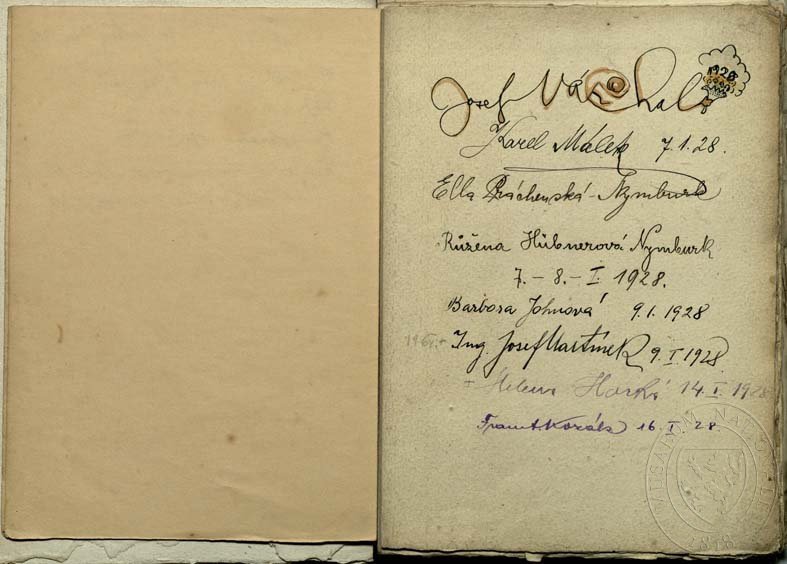 Josef Váchal 1928
Karel Málek 7.1.28.
Ella Práchenská - Nymburk
Růžena Hübnerová Nymburk
7. - 8. - I. 1928.
Barbora Johnová 9.1.1928
Ing. Josef Martínek 9.I.1928
+ Helena Horká 14.I.1928
Frant. Kozák 16.I.28.
1818